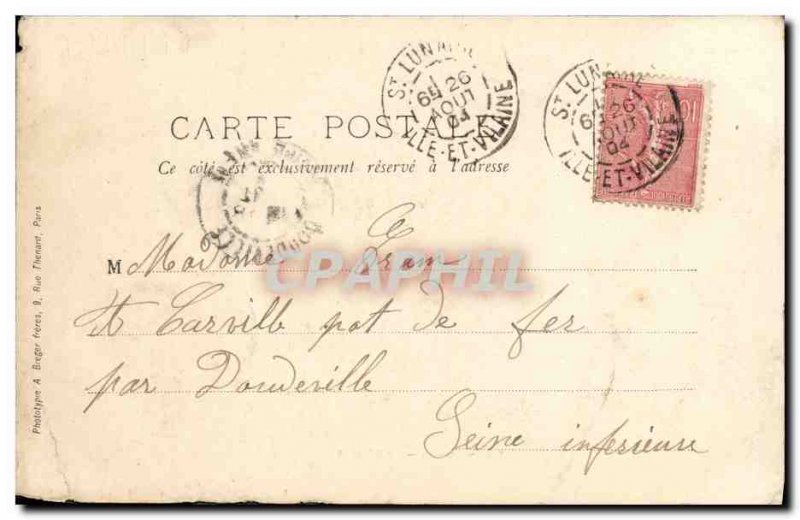 ST LUNAIRE
6E 26
AOUT
04
ILLE-ET-VILAINE
ST LUNAIRE
6E 26
AOUT
04
ILLE-ET-VILAINE
10
CARTE POSTALE
Ce côté est exclusivement réservé à l'adresse
DOUDEVILLE
M Madame Fram
CPAPHIL
St Carville pot de fer
par Doudeville
Seine inferieure
Phototypie A Breger frères, 9, Rue Thenard, Paris